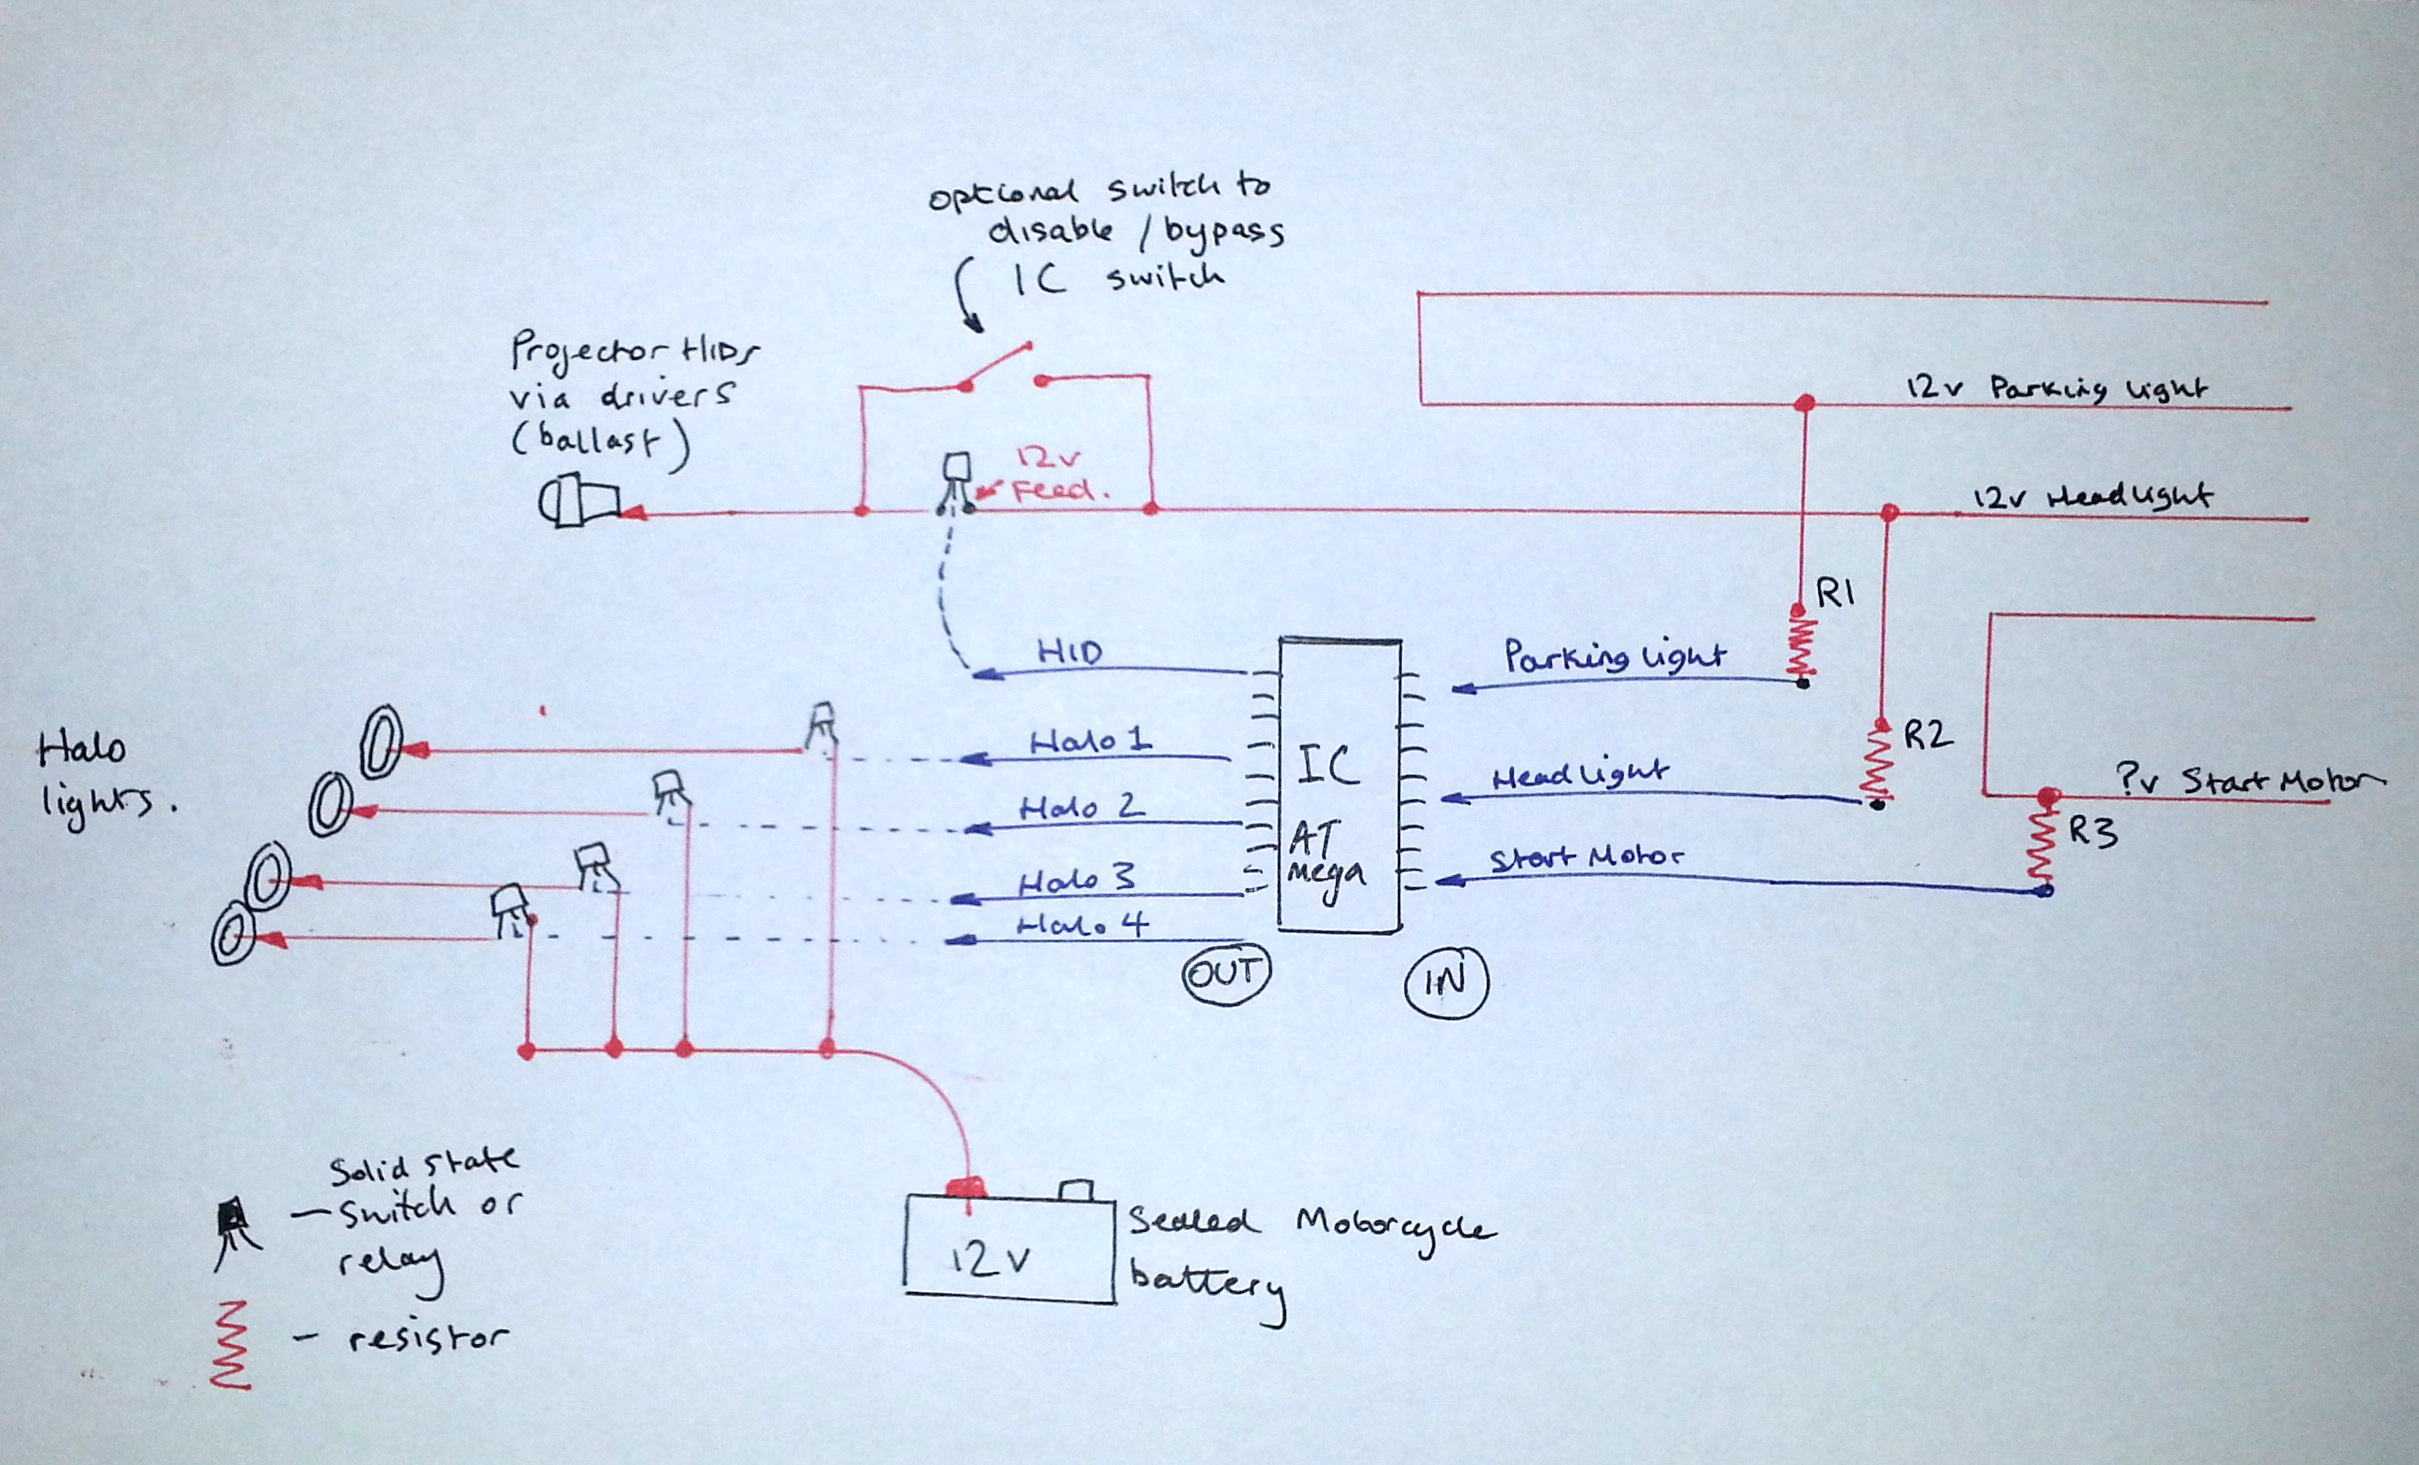 optional switch to
disable / bypass
IC switch
Projector HIDs
via drivers
(ballast)
12v
Feed.
12v Parking light
12v Headlight
R1
HID
Parking light
Halo
lights.
Halo 1
Halo 2
Halo 3
Halo 4
IC
AT
Mega
Headlight
R2
?v Start Motor
R3
Start Motor
OUT
IN
Solid state
- Switch or
relay
- resistor
12V
Sealed Motorcycle
battery